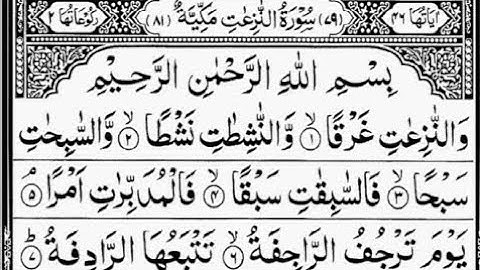 اٰيَاتُهَا ٤٦ (٧٩) سُوْرَةُ النّٰزِعٰتِ مَكِّيَّةٌ (٨١) رُكُوْعَاتُهَا ٢
بِسْمِ اللّٰهِ الرَّحْمٰنِ الرَّحِيْمِ
وَالنّٰزِعٰتِ غَرْقًا ۙ﴿۱﴾ وَّالنّٰشِطٰتِ نَشْطًا ۙ﴿۲﴾ وَّالسّٰبِحٰتِ
سَبْحًا ۙ﴿۳﴾ فَالسّٰبِقٰتِ سَبْقًا ۙ﴿۴﴾ فَالْمُدَبِّرٰتِ اَمْرًا ۘ﴿۵﴾
يَوْمَ تَرْجُفُ الرَّاجِفَةُ ۙ﴿۶﴾ تَتْبَعُهَا الرَّادِفَةُ ؕ﴿۷﴾